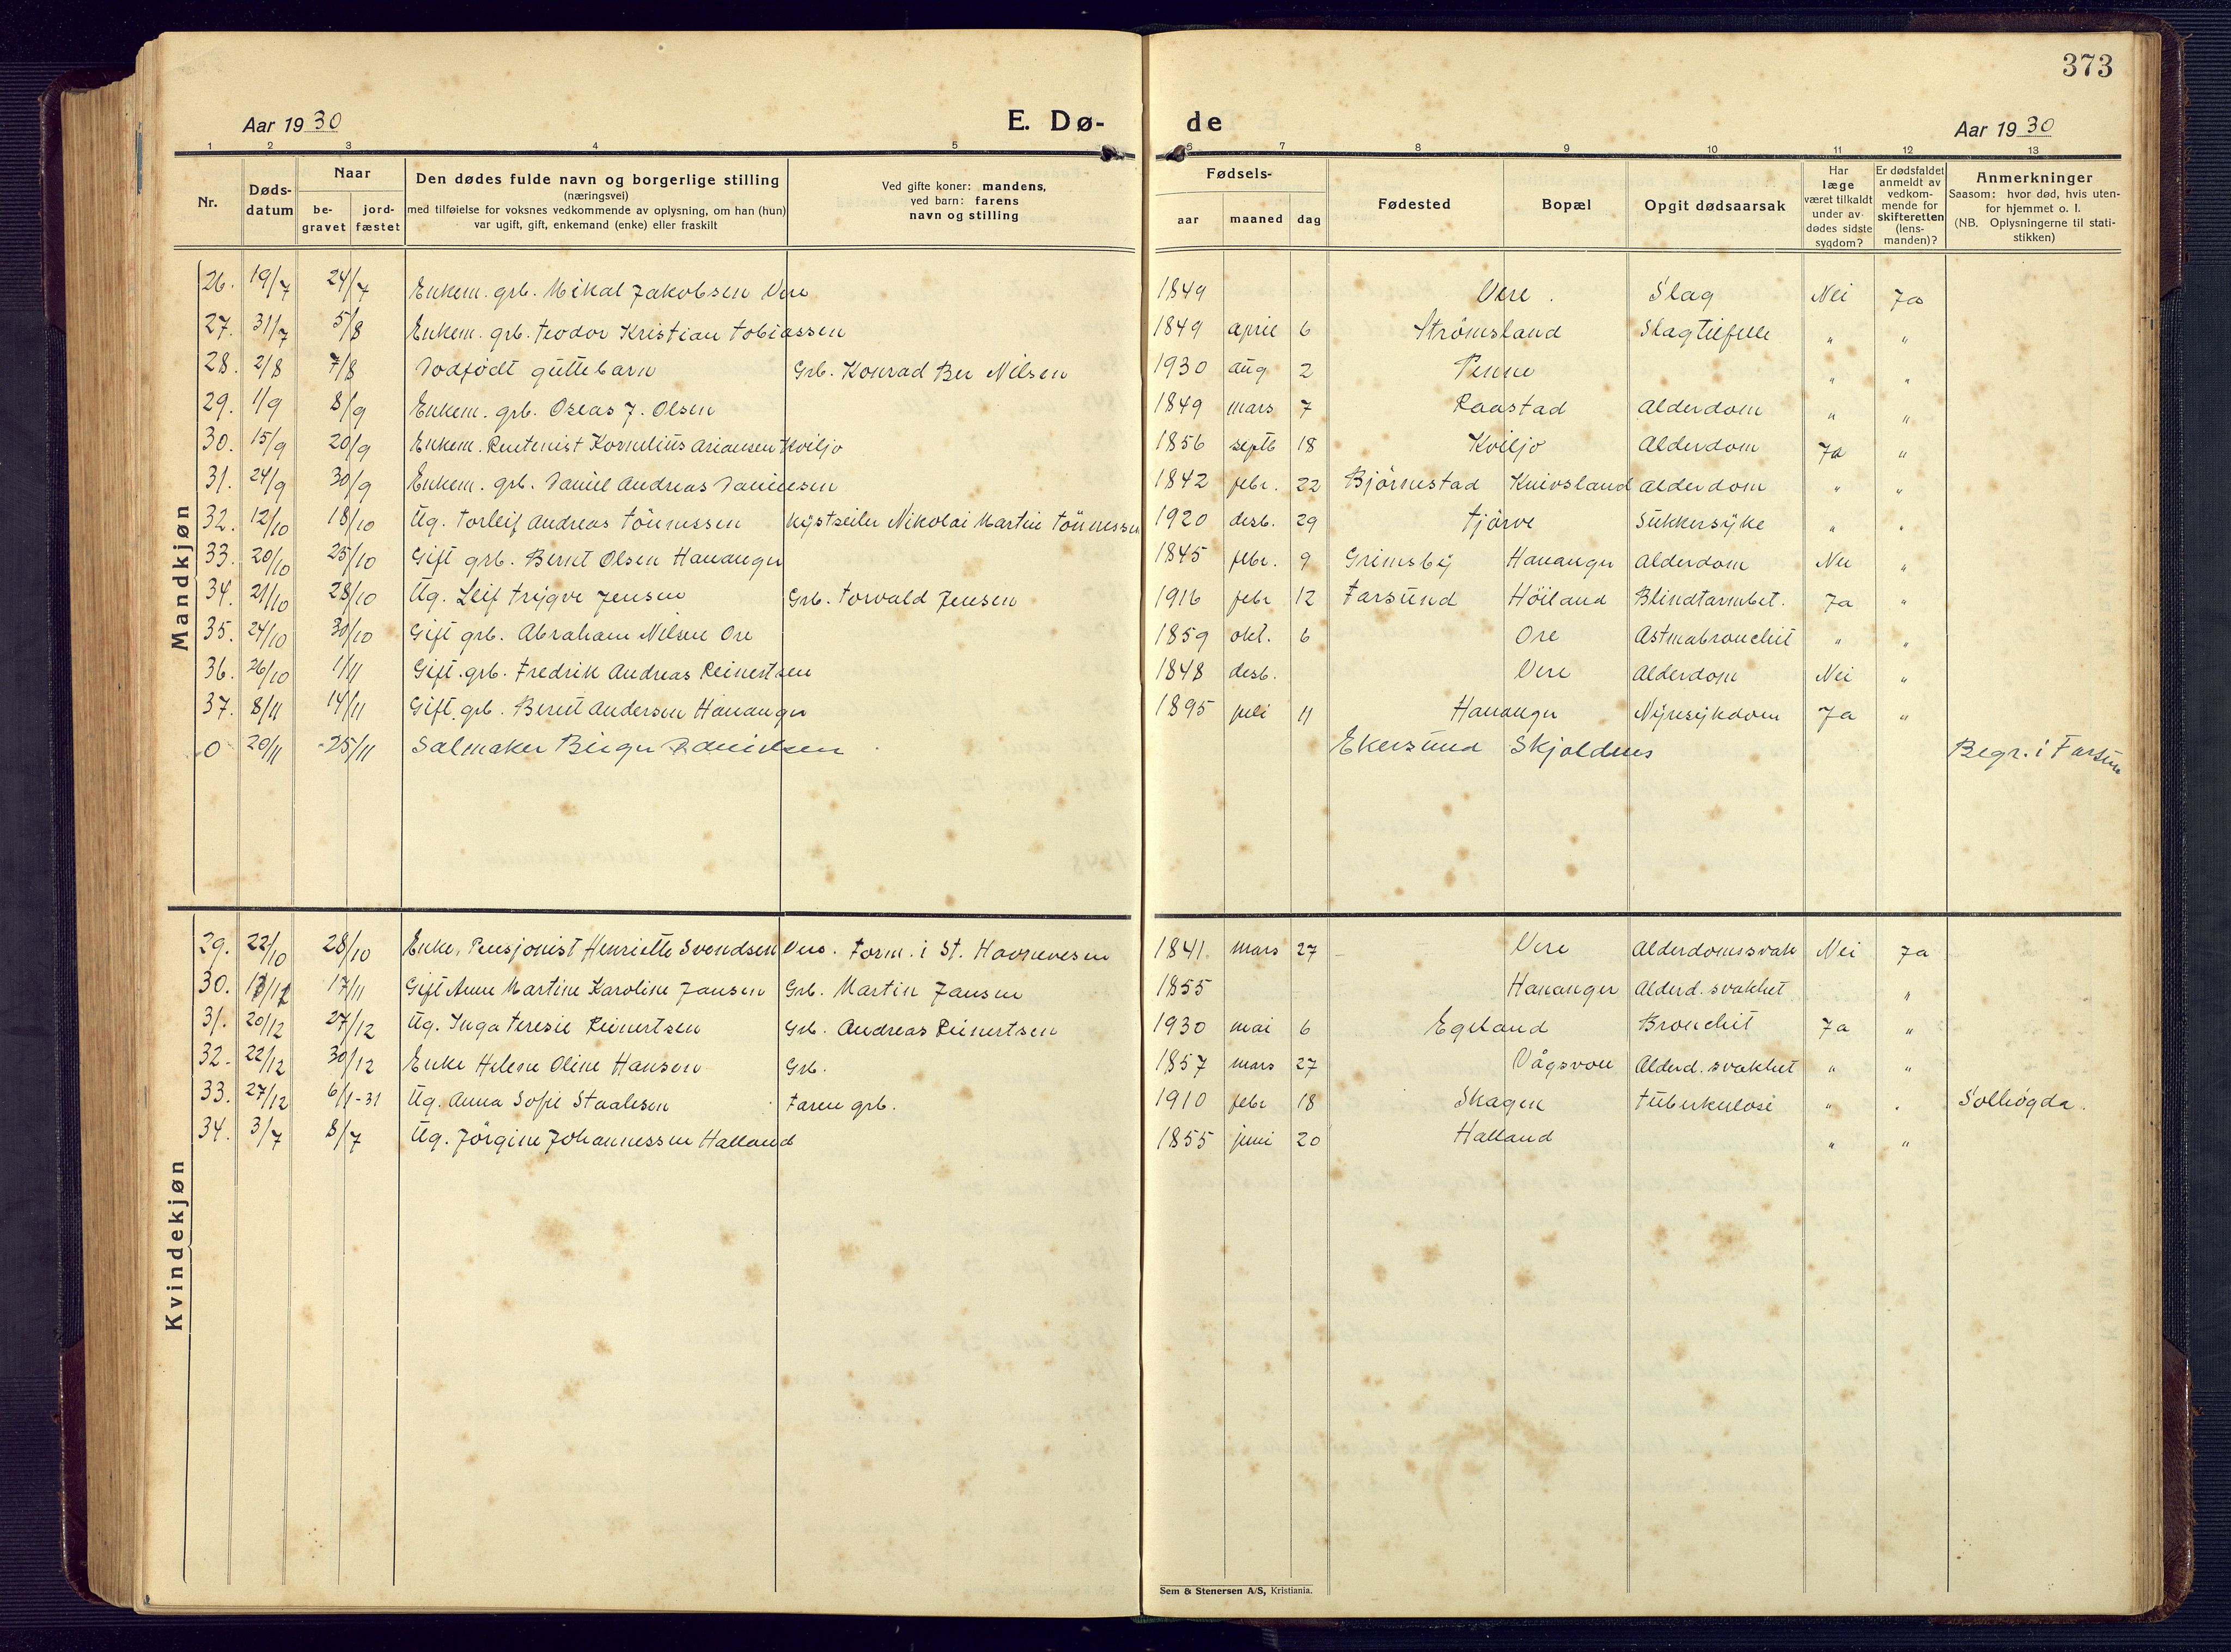 373
Aar 1930 E. Dø- de Aar 1930
1 2 3 4 5 6 7 8 9 10 11 12 13
Nr.
Døds-
datum
Naar
be-
gravet
jord-
fæstet
Den dødes fulde navn og borgerlige stilling
(næringsvei)
med tilføielse for voksnes vedkommende av oplysning, om han (hun)
var ugift, gift, enkemand (enke) eller fraskilt
Ved gifte koner: mandens,
ved barn: farens
navn og stilling
Fødsels-
aar maaned dag
Fødested
Bopæl
Opgit dødsaarsak
Har
læge
været tilkaldt
under av-
dødes sidste
sygdom?
Er dødsfaldet
anmeldt av
vedkom-
mende for
skifteretten
(lens-
manden)?
Anmerkninger
Saasom: hvor død, hvis uten-
for hjemmet o. l.
(NB. Oplysningerne til stati-
stikken)
Mandkjøn
26. 19/7 24/7 Enkem. grb. Mikal Jakobsen Vere 1849 Vere. Slag Nei Ja
27. 31/7 5/8 Enkem. grb. Teodor Kristian Tobiassen 1849 april 6 Strømsland Slagtilfelle " "
28. 2/8 7/8 Dødfødt guttebarn Grb. Konrad Ber Nilsen 1930 aug 2 Penne " "
29. 1/9 8/9 Enkem. grb. Oseas J. Olsen 1849 mars 7 Raastad Alderdom " "
30. 15/9 20/9 Enkem. Rentenist Kornelius Ariansen Kviljo 1856 septb 18 Kviljo Alderdom Ja "
31. 24/9 30/9 Enkem. grb. Daniel Andreas Danielsen 1842 febr. 22 Bjørnestad Knivsland Alderdom " "
32. 12/10 18/10 Ug. Torleif Andreas Tönnessen Kystseiler Nikolai Martin Tönnessen 1920 desb. 29 Tjørve Sukkersyke " "
33. 20/10 25/10 Gift grb. Bernt Olsen Hananger 1845 febr. 9 Grimsby Hananger Alderdom Nei "
34. 21/10 28/10 Ug. Leif Trygve Jensen Grb. Torvald Jensen 1916 febr 12 Farsund Höiland Blindtarmbet. Ja "
35. 24/10 30/10 Gift grb. Abraham Nilsen Ore 1859 okt. 6 Ore Astmabronchit " "
36. 26/10 1/11 Gift. grb. Fredrik Andreas Reinertsen 1848 desb. Vere Alderdom Nei "
37. 8/11 14/11 Gift. grb. Bernt Andersen Hananger 1895 juli 11 Hananger Nyresykdom Ja "
0 20/11 -25/11 Salmaker Birger Danielsen Ekersund Skjoldnes Begr. i Farsun
Kvindekjøn
29. 22/10 28/10 Enke, Pensjonist Henriette Svendsen Vere. Form. i St. Havnevesen 1841. mars 27 Vere Alderdomssvak Nei Ja
30. 17/11 Gift Anne Martine Karoline Jansen Grb. Martin Jansen 1855 Hananger Alderd. svakhet "
31. 20/12 27/12 Ug. Inga Teresie Reinertsen Grb. Andreas Reinertsen 1930 mai 6 Egeland Bronchit Ja "
32. 22/12 30/12 Enke Helene Oline Hansen Grb. 1857 mars 27 Vågsvoll Alderd. svakhet " "
33. 27/12 6/1-31 Ug. Anna Sofie Staalesen Faren grb. 1910 febr 18 Skagen Tuberkulose " " Solhøgda.
34. 3/7 8/7 Ug. Jörgine Johannessen Halland 1855 juni 20 Halland " "
Sem & Stenersen A/S, Kristiania.